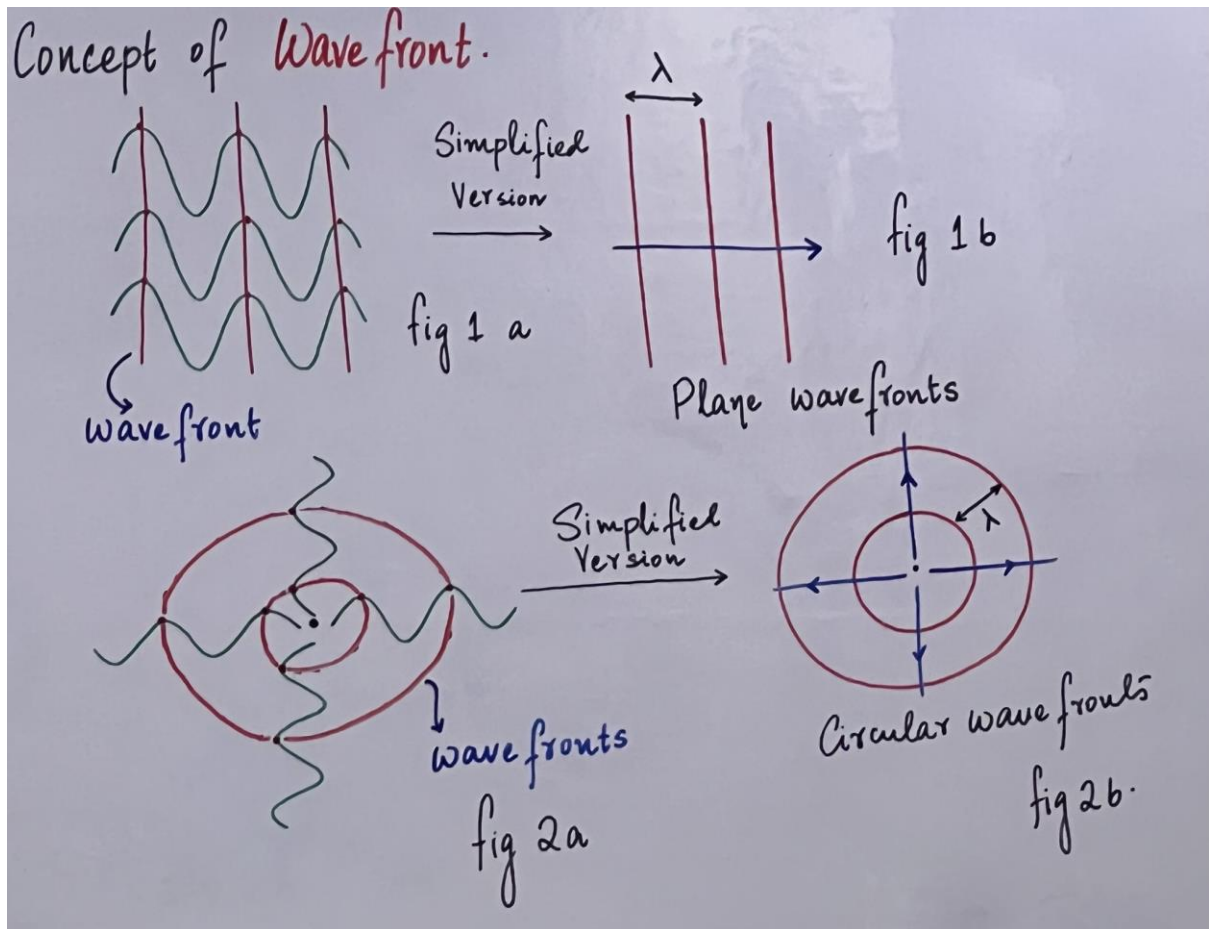 Concept of Wavefront.
λ
Simplified
Version
fig 1 b
fig 1 a
wavefront
Plane wavefronts
Simplified
Version
λ
wavefronts
Circular wavefronts
fig 2a
fig 2b.